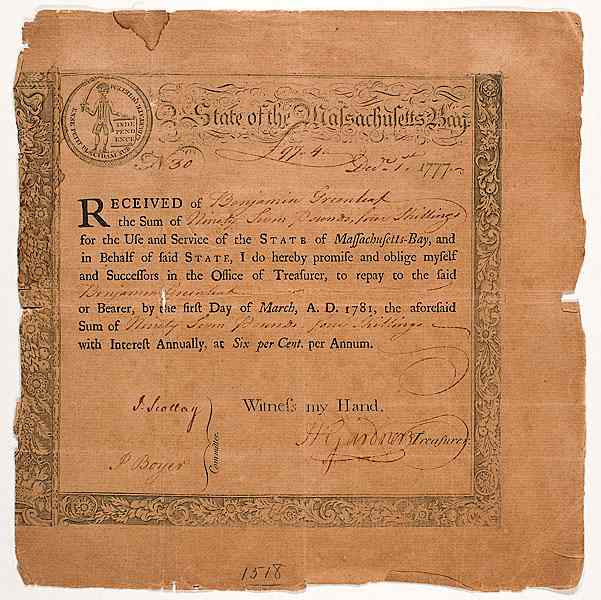 ENSE PETIT PLACIDAM SUB LIBERTATE QUIETEM
INDE
PEND
ENCE
State of the Massachusetts Bay
No 30
£97.4
Decr 1st 1777
RECEIVED of Benjamin Greenleaf
the Sum of Ninety Seven Pounds, four Shillings
for the Uſe and Service of the STATE of Maſſachuſetts-Bay, and
in Behalf of ſaid STATE, I do hereby promiſe and oblige myſelf
and Succeſſors in the Office of Treaſurer, to repay to the ſaid
Benjamin Greenleaf
or Bearer, by the firſt Day of March, A. D. 1781, the aforeſaid
Sum of Ninety Seven Pounds four Shillings
with Intereſt Annually, at Six per Cent. per Annum.
J. Scollay
Witneſs my Hand,
H Gardner Treaſurer
P Boyer
Committee.
1518